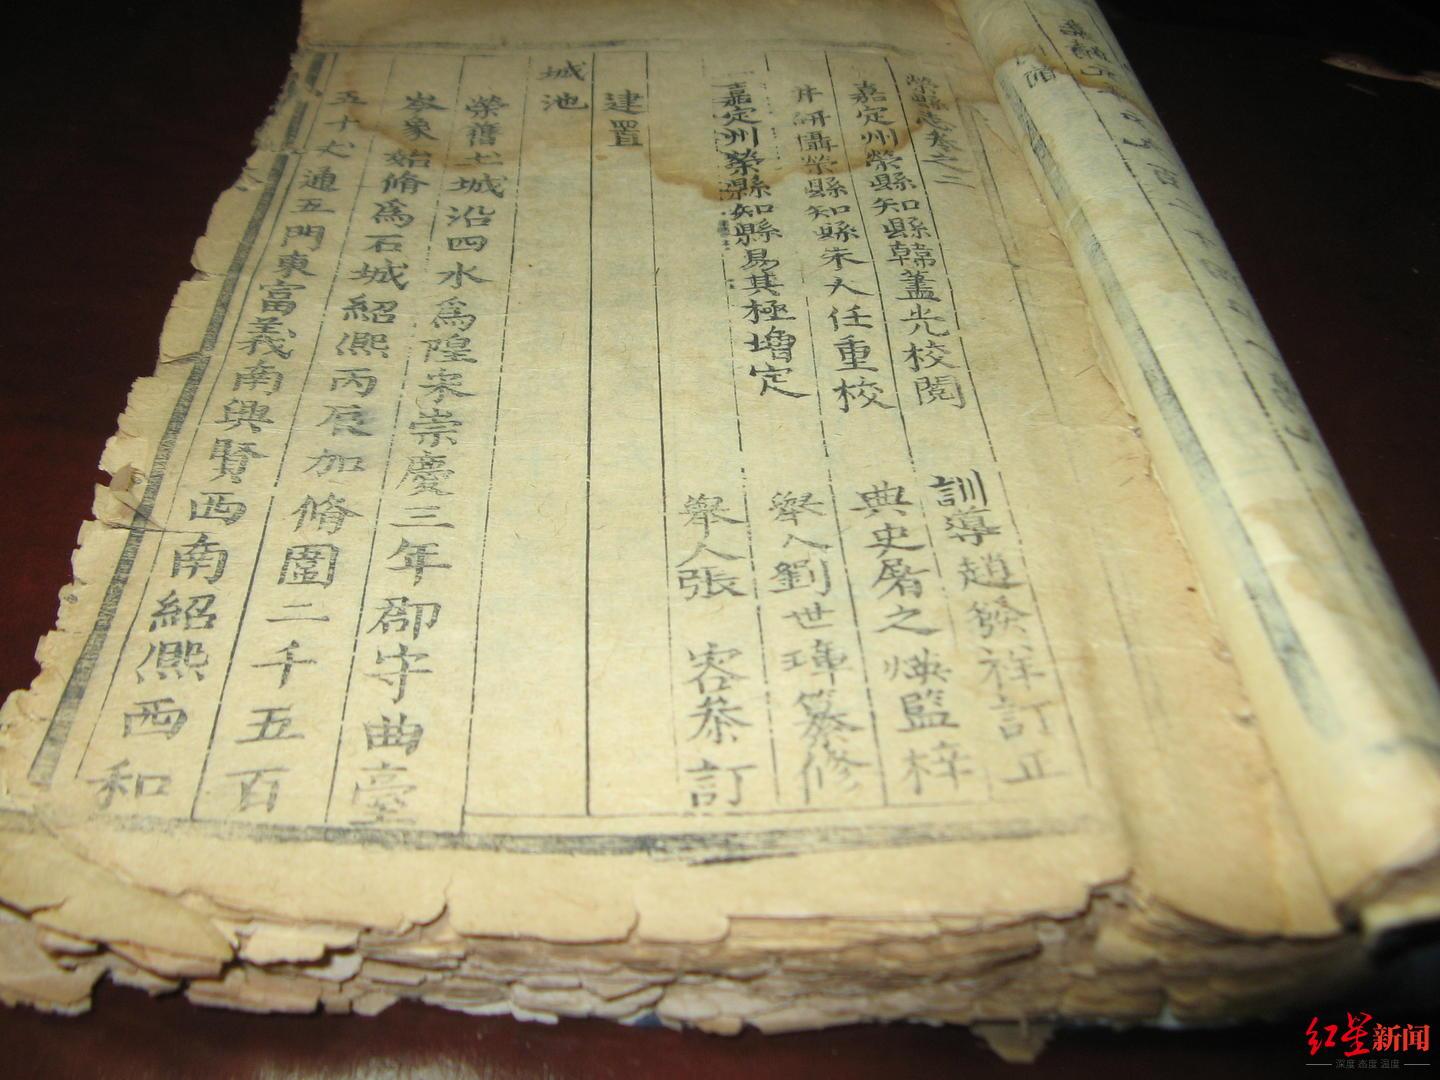 榮縣志卷之二
嘉定州榮縣知縣韓藎光校閱 訓導趙發祥訂正
井研攝榮縣知縣朱大任重校 典史屠之煐監梓
嘉定州榮縣知縣易其極增定 舉人劉世琿纂修
舉人張 容恭訂
建置
城池
榮舊土城沿四水爲隍宋崇慶三年郡守曲臺
岑象始脩爲石城紹熙丙辰加脩圍二千五百
五十丈通五門東富義南興賢西南紹熙西和
红星新闻
深度 态度 温度